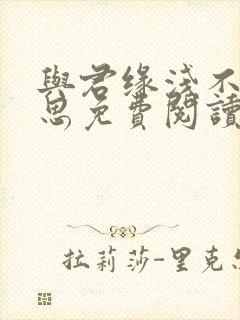 與君缘淺不
思免費閱讀
拉莉莎-里克